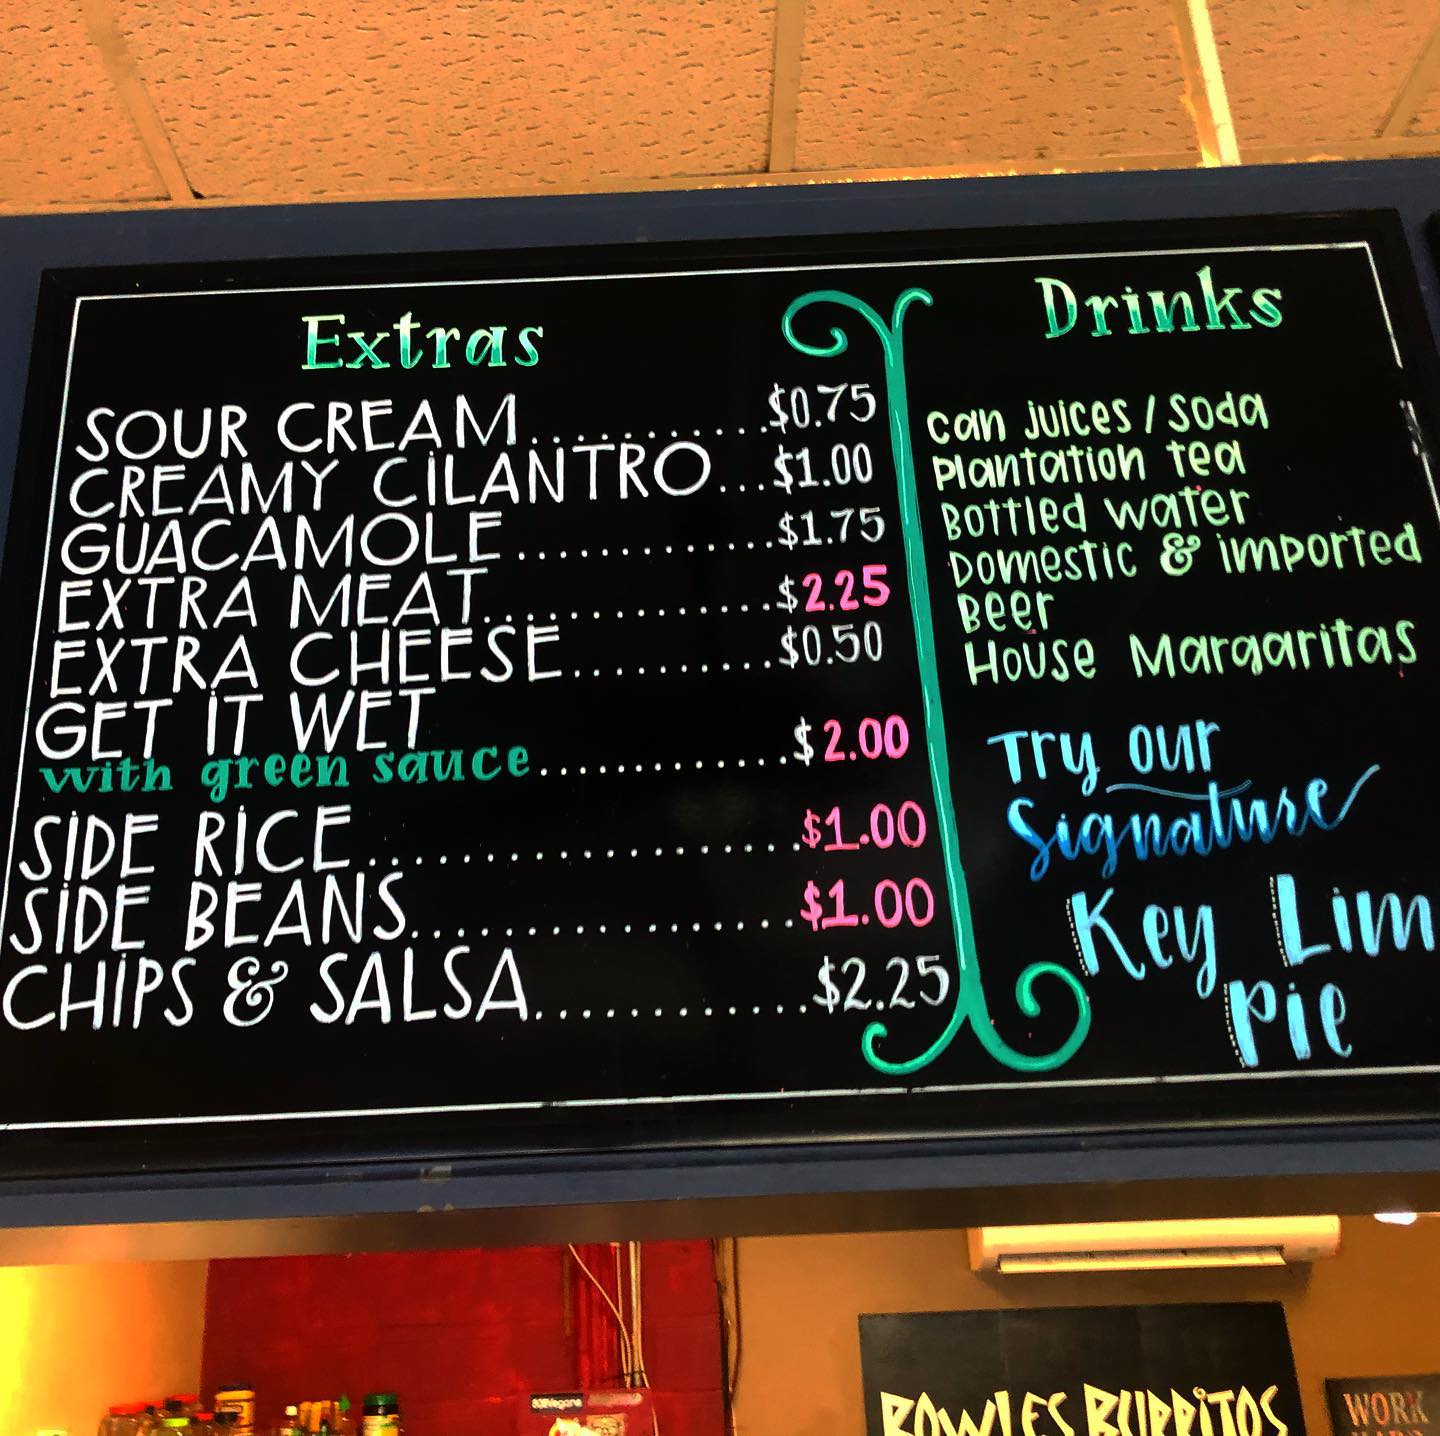 Extras
SOUR CREAM...........$0.75
CREAMY CILANTRO...$1.00
GUACAMOLE.............$1.75
EXTRA MEAT..............$2.25
EXTRA CHEESE..........$0.50
GET IT WET
with green sauce.............$2.00
SIDE RICE....................$1.00
SIDE BEANS.................$1.00
CHIPS & SALSA............$2.25
Drinks
can juices / soda
Plantation tea
Bottled water
Domestic & imported
Beer
House Margaritas
Try our
Signature
Key Lim
Pie
BOWLES BURRITOS
WORK
HARD
808Vegans